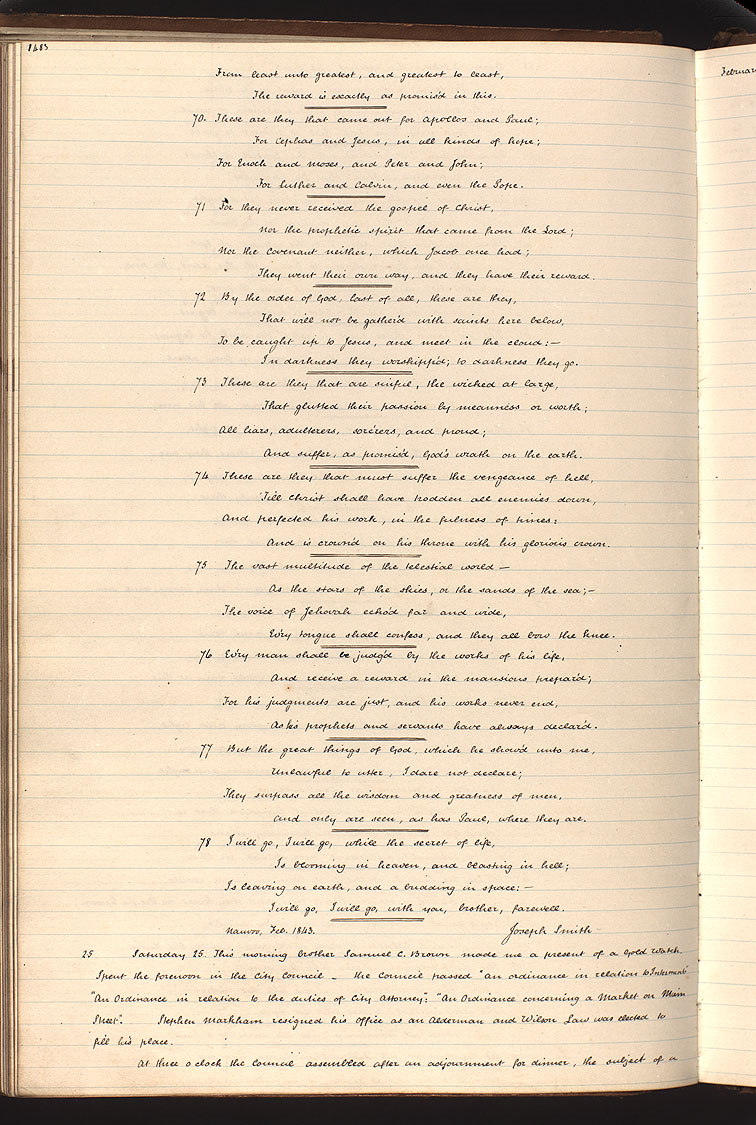 1483
Februar
From least unto greatest, and greatest to least,
The reward is exactly as promis'd in this.
70. These are they that came out for Apollos and Paul;
For Cephas and Jesus, in all kinds of hope;
For Enoch and Moses, and Peter and John;
For Luther and Calvin, and even the Pope.
71 For they never received the gospel of Christ,
Nor the prophetic spirit that came from the Lord;
Nor the covenant neither, which Jacob once had;
They went their own way, and they have their reward.
72 By the order of God, last of all, these are they,
That will not be gather'd with saints here below,
To be caught up to Jesus, and meet in the cloud:—
In darkness they worshipp'd; to darkness they go.
73 These are they that are sinful, the wicked at large,
That glutted their passion by meanness or worth;
All liars, adulterers, sorc'rers, and proud;
And suffer, as promis'd, God's wrath on the earth.
74 These are they that must suffer the vengeance of hell,
'Till Christ shall have trodden all enemies down,
And perfected his work, in the fulness of times:
And is crown'd on his throne with his glorious crown.
75 The vast multitude of the telestial world —
As the stars of the skies, or the sands of the sea;—
The voice of Jehovah echo'd far and wide,
Ev'ry tongue shall confess, and they all bow the knee.
76 Ev'ry man shall be judg'd by the works of his life,
And receive a reward in the mansions prepar'd;
For his judgments are just, and his works never end,
As his prophets and servants have always declar'd.
77 But the great things of God, which he show'd unto me,
Unlawful to utter, I dare not declare;
They surpass all the wisdom and greatness of men,
And only are seen, as has Paul, where they are.
78 I will go, I will go, while the secret of life,
Is blooming in heaven, and blasting in hell;
Is leaving on earth, and a budding in space:—
I will go, I will go, with you, brother, farewell.
Nauvoo, Feb. 1843. Joseph Smith
25 Saturday 25. This morning brother Samuel C. Brown made me a present of a Gold Watch.
Spent the forenoon in the City Council — the Council passed "an ordinance in relation to Interments"
"An Ordinance in relation to the duties of City Attorney"; "An Ordinance concerning a Market on Main
Street". Stephen Markham resigned his office as an Alderman and Wilson Law was elected to
fill his place.
At three o'clock the Council assembled after an adjournment for dinner, the subject of a